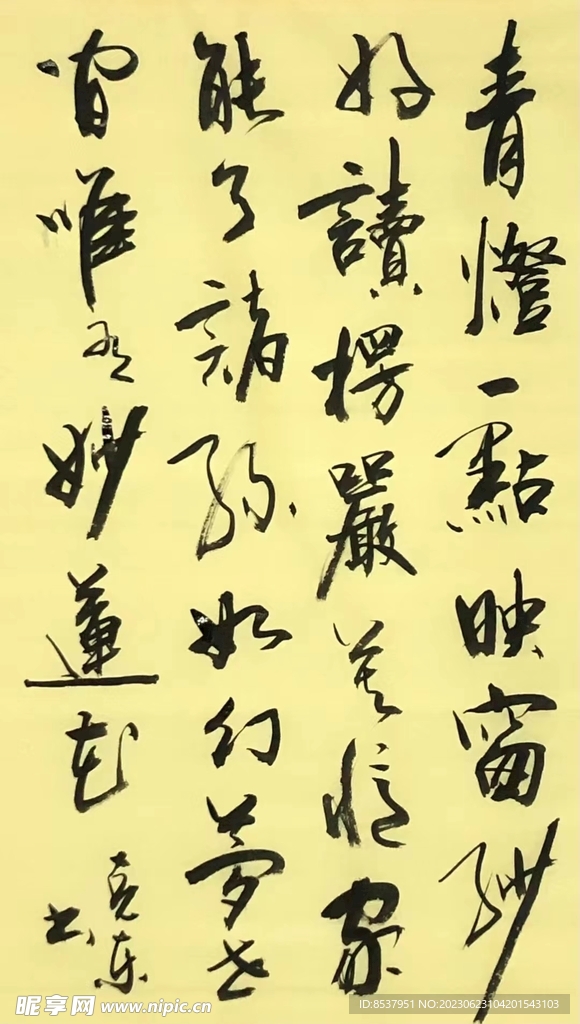 青燈一點映窗紗
好讀楞嚴莫憶家
能了諸緣如幻夢世
間唯有妙蓮花
克东
书
昵享网 www.nipic.cn
ID:8537951 NO:20230623104201543103